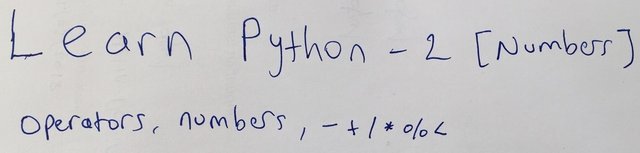 Learn Python - 2 [Numbers]
operators, numbers, - + / * % <